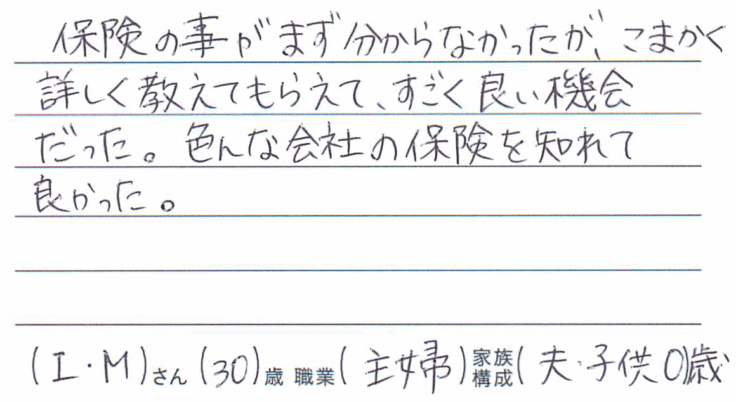 保険の事がまず分からなかったが、こまかく
詳しく教えてもらえて、すごく良い機会
だった。色んな会社の保険を知れて
良かった。
(I・M)さん(30)歳 職業(主婦)家族構成(夫・子供0)歳